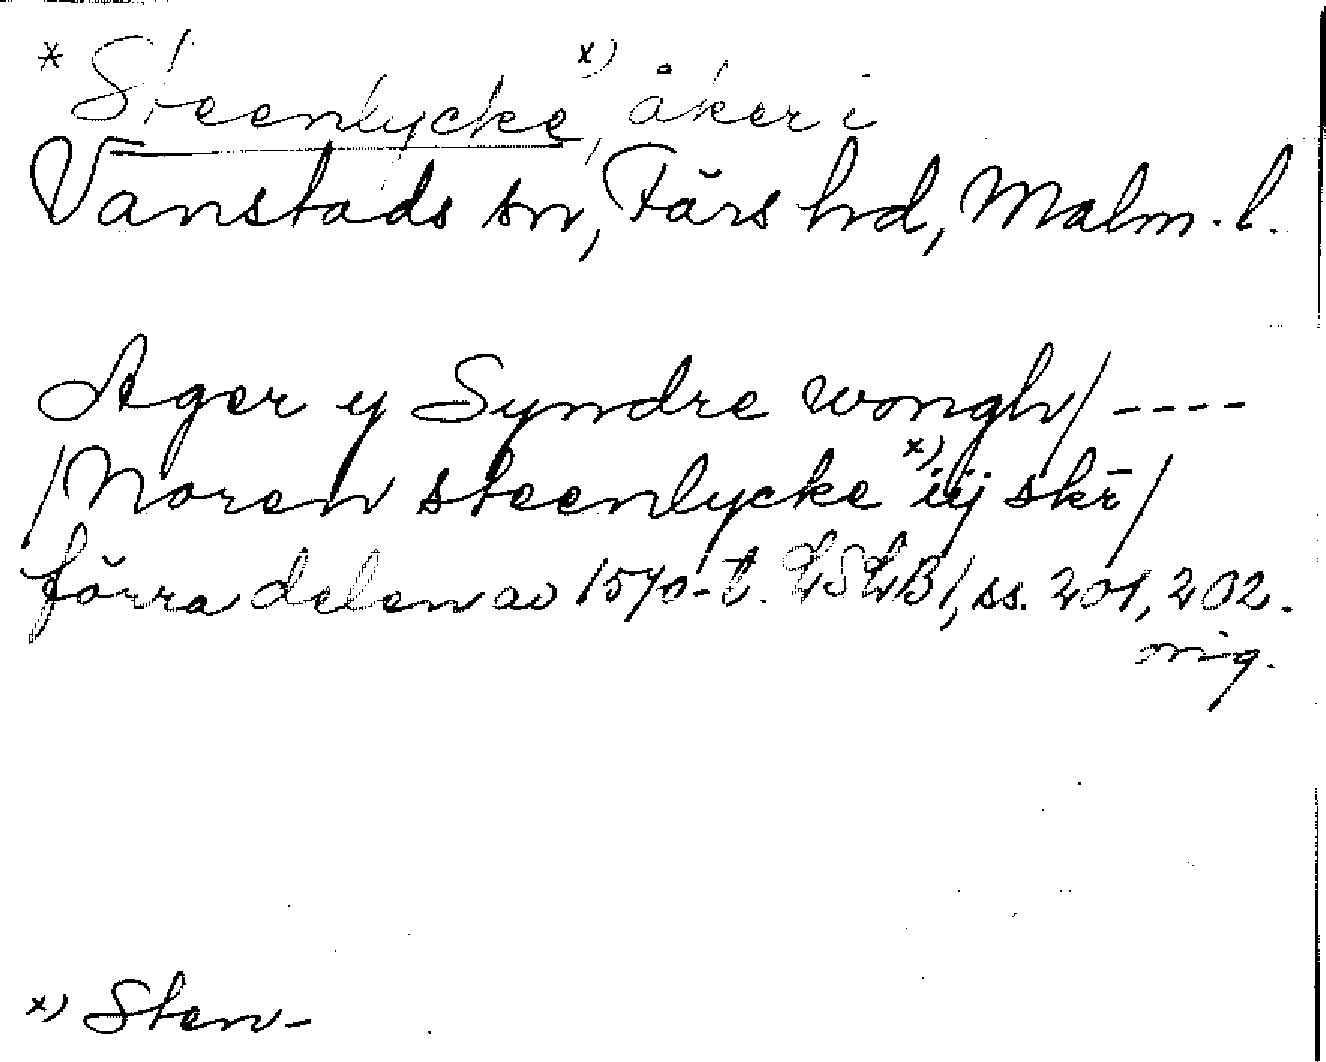 * Steenlycke x), åker i
Vanstads sn, Färs hd, Malm. l.
Ager y Syndre wongh/ ----
/Noren steenlycke x) iij skr̄/
förra delen av 1570-t. LSLB1, ss. 201, 202.
orig.
x) Sten-